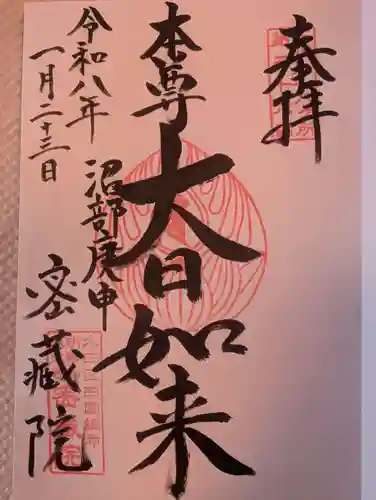 奉拝
本尊 大日如来
沼部庚申
密蔵院
令和八年
一月二十三日